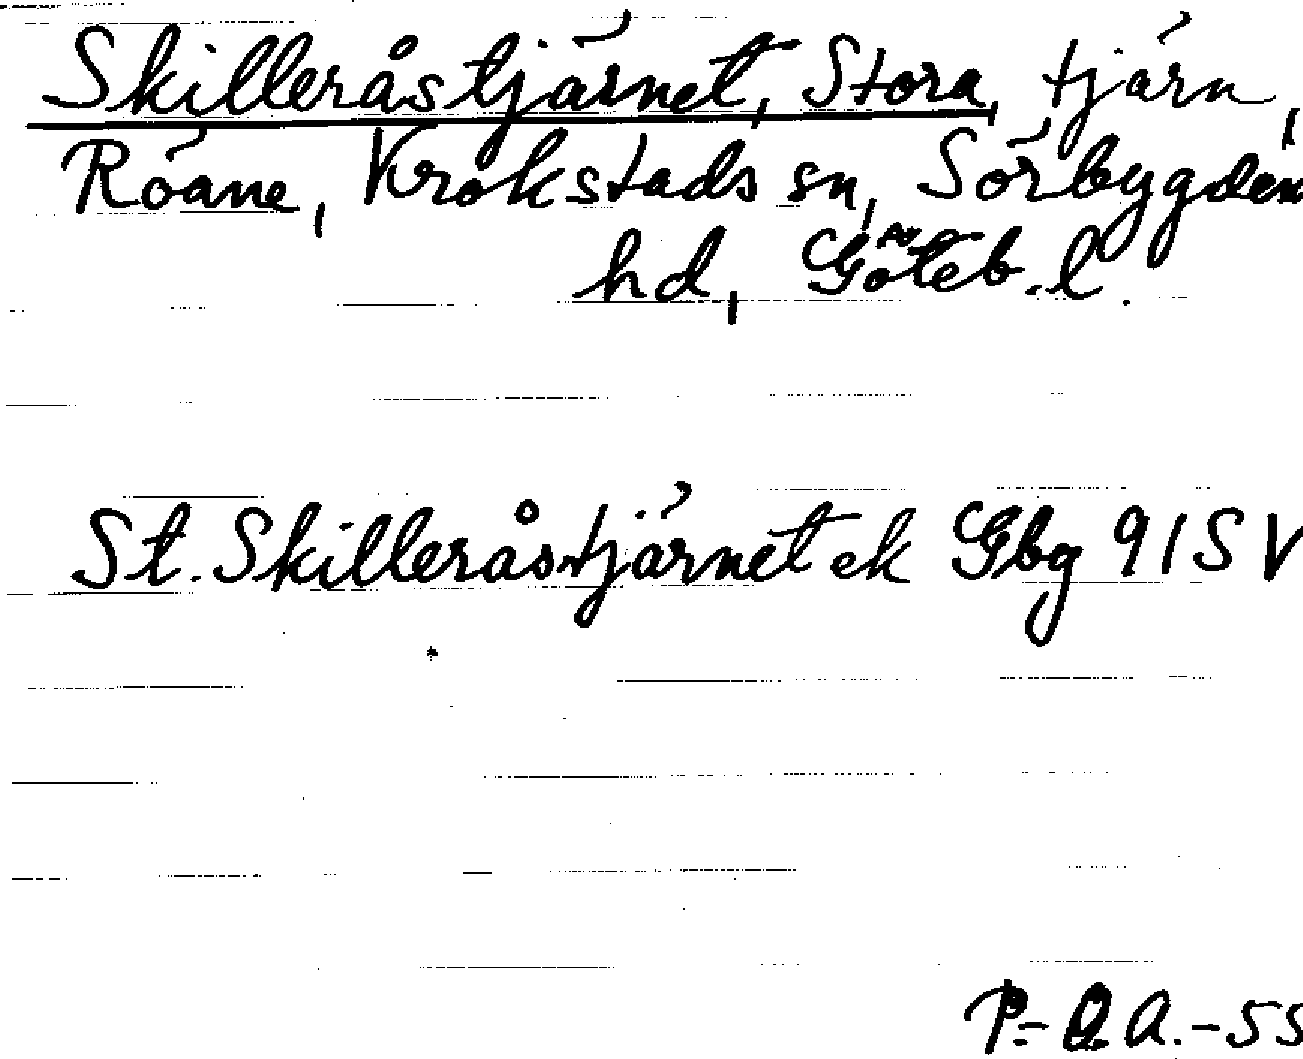 Skilleråstjärnet, Stora, tjärn,
Röane, Krokstads sn, Sörbygdens
hd, Göteb. l.
St. Skilleråstjärnet ek Gbg 91 SV
P-O A.-55